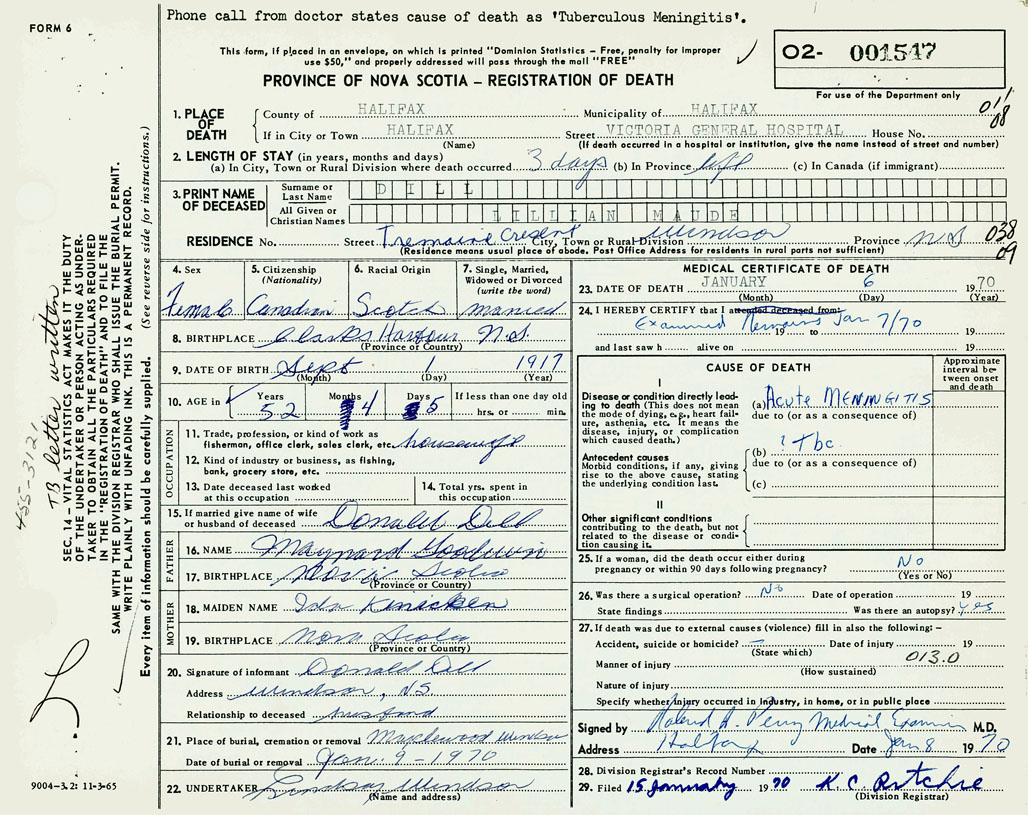 Phone call from doctor states cause of death as 'Tuberculous Meningitis'.
FORM 6
This form, if placed in an envelope, on which is printed "Dominion Statistics – Free, penalty for improper
use $50," and properly addressed will pass through the mail "FREE"
PROVINCE OF NOVA SCOTIA – REGISTRATION OF DEATH
02- 001547
For use of the Department only
011
08
1. PLACE OF DEATH
County of HALIFAX Municipality of HALIFAX
If in City or Town HALIFAX Street VICTORIA GENERAL HOSPITAL House No.
(Name) (If death occurred in a hospital or institution, give the name instead of street and number)
2. LENGTH OF STAY (in years, months and days)
(a) In City, Town or Rural Division where death occurred 3 days (b) In Province life (c) In Canada (if immigrant)
3. PRINT NAME OF DECEASED
Surname or Last Name DILL
All Given or Christian Names LILLIAN MAUDE
RESIDENCE No. Street Tremaine Cresent City, Town or Rural Division Windsor Province NS
038
09
(Residence means usual place of abode. Post Office Address for residents in rural parts not sufficient)
4. Sex
Female
5. Citizenship
(Nationality)
Canadian
6. Racial Origin
Scotch
7. Single, Married,
Widowed or Divorced
(write the word)
married
8. BIRTHPLACE Clarks Harbour N.S.
(Province or Country)
9. DATE OF BIRTH Sept 1 1917
(Month) (Day) (Year)
10. AGE in Years Months Days If less than one day old
52 4 5 hrs. or min.
OCCUPATION
11. Trade, profession, or kind of work as
fisherman, office clerk, sales clerk, etc. housewife
12. Kind of industry or business, as fishing,
bank, grocery store, etc.
13. Date deceased last worked
at this occupation
14. Total yrs. spent in
this occupation
15. If married give name of wife
or husband of deceased Donald Dill
FATHER
16. NAME Maynard Goodwin
17. BIRTHPLACE Nova Scotia
(Province or Country)
MOTHER
18. MAIDEN NAME Ida
19. BIRTHPLACE Nova Scotia
(Province or Country)
20. Signature of informant Donald Dill
Address Windsor, NS
Relationship to deceased husband
21. Place of burial, cremation or removal Maplewood Windsor
Date of burial or removal Jan. 9 - 1970
22. UNDERTAKER Lindsay Windsor
(Name and address)
MEDICAL CERTIFICATE OF DEATH
23. DATE OF DEATH JANUARY 6 1970
(Month) (Day) (Year)
24. I HEREBY CERTIFY that I attended deceased from
Examined Remains Jan 7/70
19 to 19
and last saw h alive on 19
CAUSE OF DEATH
Approximate
interval be-
tween onset
and death
I
Disease or condition directly lead-
ing to death (This does not
mean the mode of dying, e.g., heart fail-
ure, asthenia, etc. It means the
disease, injury, or complication
which caused death.)
(a) Acute MENINGITIS
due to (or as a consequence of)
Antecedent causes
Morbid conditions, if any, giving
rise to the above cause, stating
the underlying condition last.
(b) ? Tbc
due to (or as a consequence of)
(c)
II
Other significant conditions
contributing to the death, but not
related to the disease or condi-
tion causing it.
25. If a woman, did the death occur either during
pregnancy or within 90 days following pregnancy? No
(Yes or No)
26. Was there a surgical operation? No Date of operation 19
State findings Was there an autopsy? yes
27. If death was due to external causes (violence) fill in also the following: –
Accident, suicide or homicide? – Date of injury 19
(State which)
013.0
Manner of injury
(How sustained)
Nature of injury
Specify whether injury occurred in industry, in home, or in public place
Signed by Roland A. Perry Medical Examiner M.D.
Address Halifax Date Jan 8 1970
28. Division Registrar's Record Number
29. Filed 15 January 1970 K. C. Ritchie
(Division Registrar)
SEC. 14 – VITAL STATISTICS ACT MAKES IT THE DUTY
OF THE UNDERTAKER OR PERSON ACTING AS UNDER-
TAKER TO OBTAIN ALL THE PARTICULARS REQUIRED
IN THE "REGISTRATION OF DEATH" AND TO FILE THE
SAME WITH THE DIVISION REGISTRAR WHO SHALL ISSUE THE BURIAL PERMIT.
WRITE PLAINLY WITH UNFADING INK. THIS IS A PERMANENT RECORD.
Every item of information should be carefully supplied. (See reverse side for instructions.)
TB letter written
455-3121
9004-3.2: 11-3-65